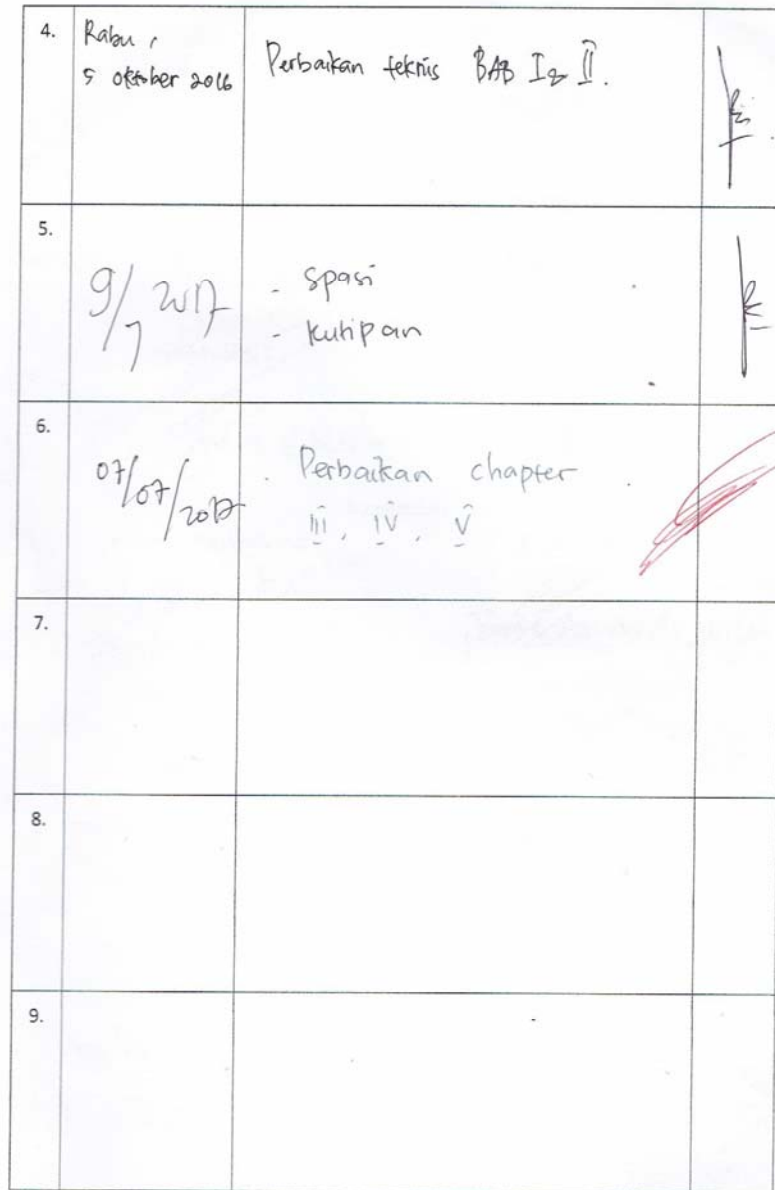 4.
Rabu,
5 Oktober 2016
Perbaikan teknis BAB I & II.
5.
9/7 2017
- Spasi
- Kutipan
6.
07/07/2017
. Perbaikan chapter
III, IV, V
7.
8.
9.